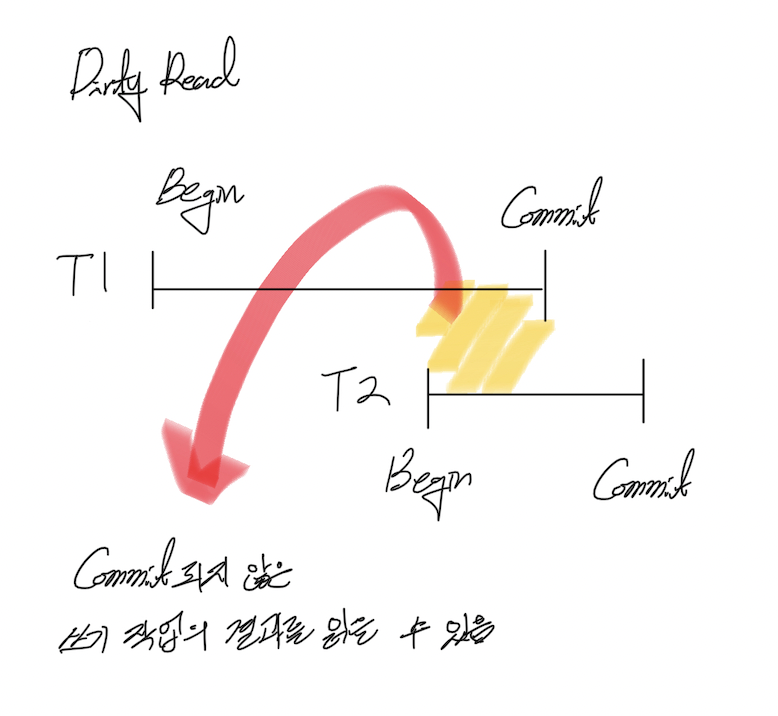 Dirty Read
Begin
Commit
T1
T2
Begin
Commit
Commit되지 않은
쓰기 작업의 결과를 읽을 수 있음